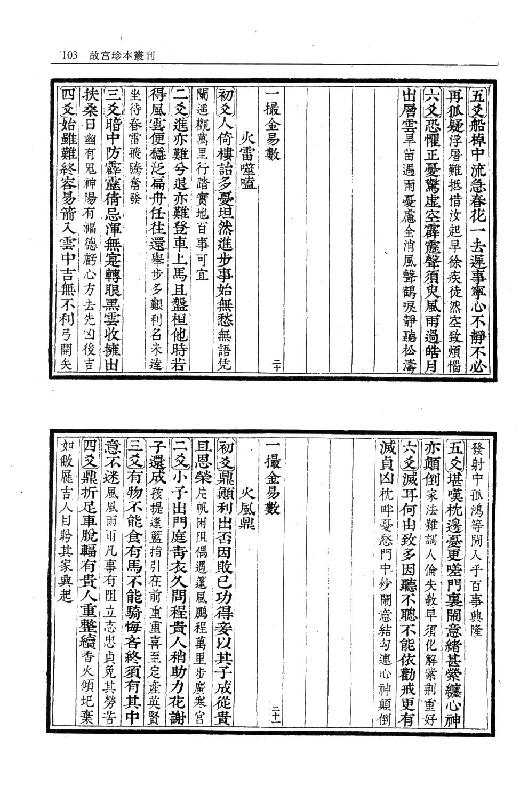 103 故宮珍本叢刊
五爻船棹中流急春花一去遲事寧心不靜不必
再狐疑浮屠難抵惜汝起早徐疾徒然空致煩惱
六爻恐懼正憂驚虛空霹靂聲須臾風雨過皓月
出層雲旱苗遇雨憂慮全消風聲鶴唳靜聽松濤
一撮金易數
二十
火雷噬嗑
初爻人倚樓詒多憂坦然進步事始無愁無語凭
闌遥樅萬里行踏實地百事可宜
二爻進亦難分退亦難登車上馬且盤桓他時若
得風雲便穩泛扁舟任往還舉步多艱利名未達
坐待春雷飛騰奮發
三爻暗中防霹靂猜忌渾無寔轉眼黑雲收擁出
扶桑日幽有鬼神陽有福德虧心方去先凶後吉
四爻始雖難終容易箭入雲中吉無不利弓開矢
發射中孤鴻等閒入手百事興隆
五爻堪嘆枕邊憂更嗟門裏鬧意緒甚縈纏心神
亦顛倒家法難調人倫失教早須化解紫荆重好
六爻滅耳何由致多因聽不聰不能依勸戒更有
滅貞凶枕畔憂愁門中炒鬧意結勾連心神顛倒
一撮金易數
二十一
火風鼎
初爻鼎顛利出否因敗已功得妾以其子成從貴
且恩榮片帆困阻偶遇蓬風鵬程萬里步廣寒宮
二爻小子出門庭青衣久問程貴人稍助力花謝
子還成孩提逢藍指引在前重重喜至定產英賢
三爻有物不能食有馬不能騎悔吝終須有其中
意不迷風風雨雨凡事有阻立志忠貞免其勞苦
四爻鼎折足車脫輻有貴人重整續香火傾圯葉
如敗屣吉人自聆其家興起